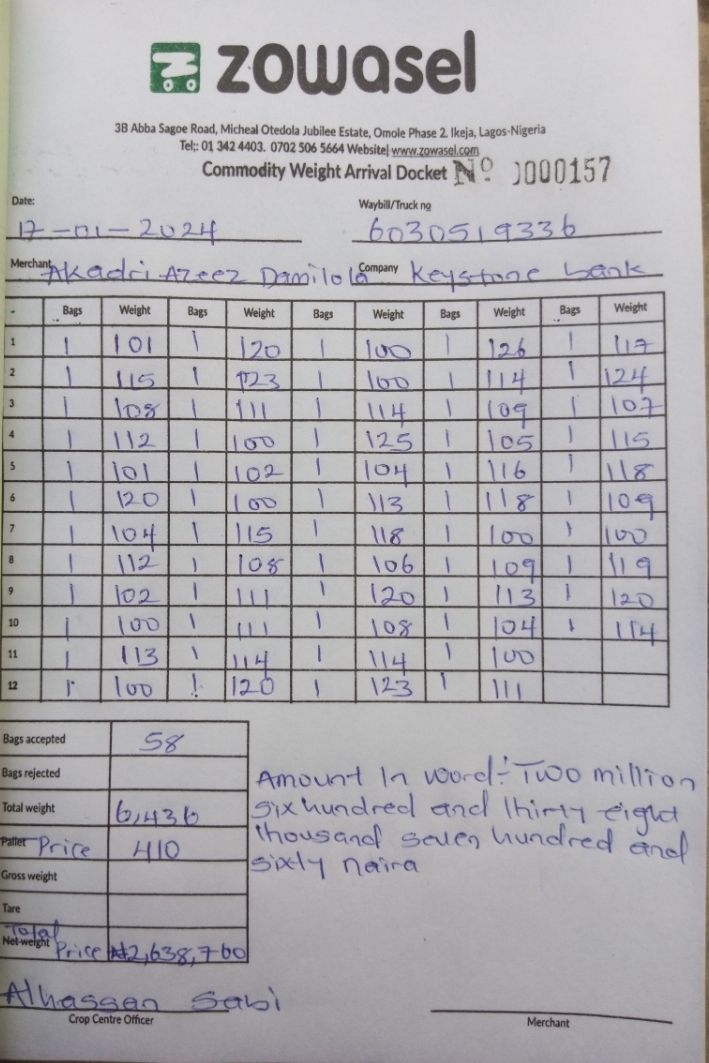 zowasel
3B Abba Sagoe Road, Micheal Otedola Jubilee Estate, Omole Phase 2. Ikeja, Lagos-Nigeria
Tel;: 01 342 4403. 0702 506 5664 Website| www.zowasel.com
Commodity Weight Arrival Docket Nº 0000157
Date: Waybill/Truck no
17-01-2024 6030519336
Merchant Akadri Azeez Damilola Company Keystone bank
- Bags Weight Bags Weight Bags Weight Bags Weight Bags Weight
1 1 101 1 120 1 100 1 126 1 117
2 1 115 1 123 1 100 1 114 1 124
3 1 108 1 111 1 114 1 109 1 107
4 1 112 1 100 1 125 1 105 1 115
5 1 101 1 102 1 104 1 116 1 118
6 1 120 1 100 1 113 1 118 1 109
7 1 104 1 115 1 118 1 100 1 100
8 1 112 1 108 1 106 1 109 1 119
9 1 102 1 111 1 120 1 113 1 120
10 1 100 1 111 1 108 1 104 1 114
11 1 113 1 114 1 114 1 100
12 1 100 1 120 1 123 1 111
Bags accepted 58
Bags rejected
Total weight 6,436
Pallet Price 410
Gross weight
Tare
Total
Net weight Price ₦2,638,760
Amount In word:- Two million
six hundred and thirty eight
thousand seven hundred and
sixty naira
Alhassan Sabi
Crop Centre Officer Merchant